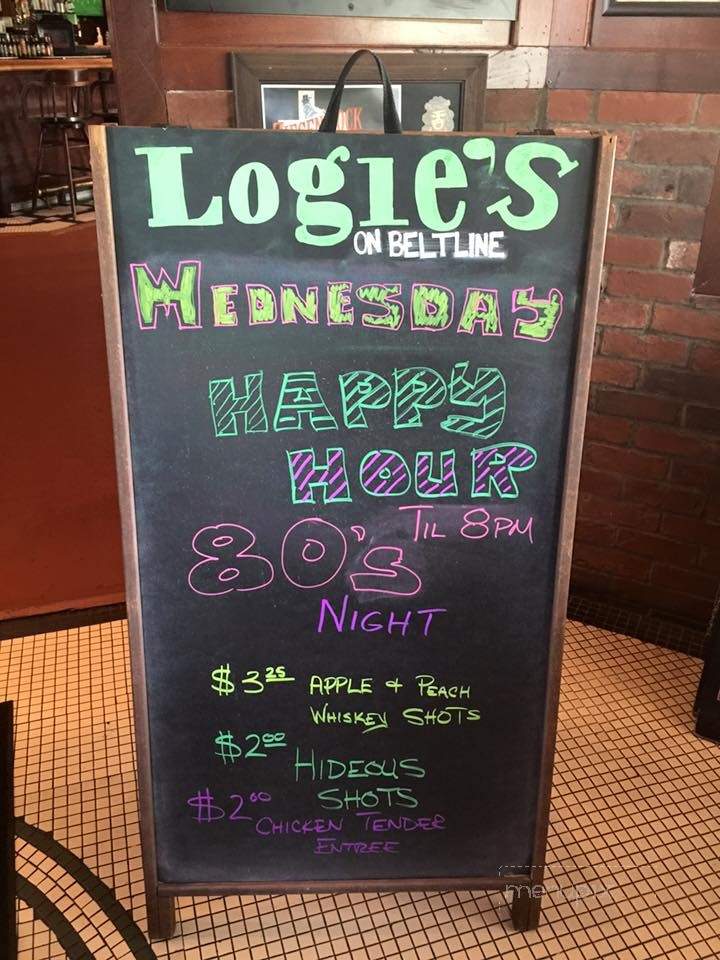 Logie's
ON BELTLINE
WEDNESDAY
HAPPY
HOUR
TIL 8PM
80's
NIGHT
$3.25 APPLE & PEACH
WHISKEY SHOTS
$2.00 HIDEOUS
SHOTS
$2.00 CHICKEN TENDER
ENTREE